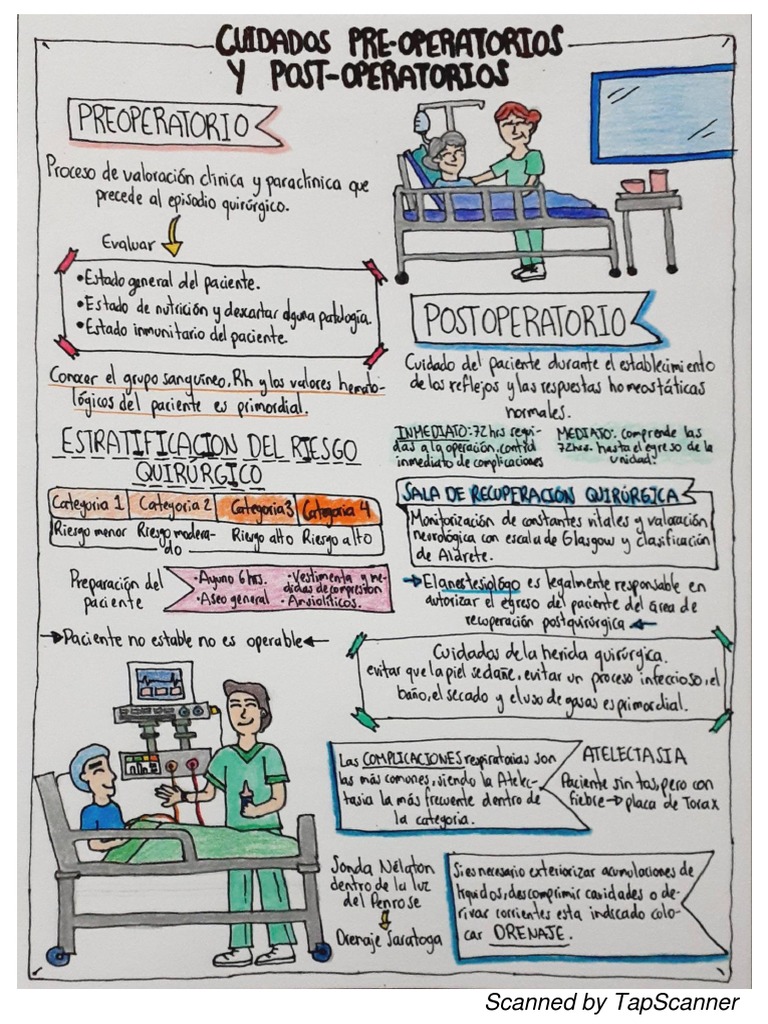 CUIDADOS PRE-OPERATORIOS
Y POST-OPERATORIOS
PREOPERATORIO
Proceso de valoración clínica y paraclínica que
precede al episodio quirúrgico.
Evaluar
•Estado general del paciente.
•Estado de nutrición y descartar alguna patología.
•Estado inmunitario del paciente.
Conocer el grupo sanguíneo, Rh y los valores hemato-
lógicos del paciente es primordial.
ESTRATIFICACION DEL RIESGO
QUIRÚRGICO
Categoria 1 Categoria 2 Categoria 3 Categoria 4
Riesgo menor Riesgo modera-
do Riesgo alto Riesgo alto
Preparación del
paciente
•Ayuno 6 hrs.
•Aseo general
•Vestimenta y me-
didas de compresion
•Ansiolíticos.
→Paciente no estable no es operable←
POSTOPERATORIO
Cuidado del paciente durante el establecimiento
de los reflejos y las respuestas homeostáticas
normales.
INMEDIATO: 72 hrs segui-
das a la operación, control
inmediato de complicaciones
MEDIATO: comprende las
72hrs. hasta el egreso de la
unidad.
SALA DE RECUPERACIÓN QUIRÚRGICA
Monitorización de constantes vitales y valoración
neurológica con escala de Glasgow y clasificación
de Aldrete.
→El anestesiologo es legalmente responsable en
autorizar el egreso del paciente del area de
recuperación postquirúrgica ←
Cuidados de la herida quirúrgica.
evitar que la piel se dañe, evitar un proceso infeccioso, el
baño, el secado y el uso de gasas es primordial.
Las COMPLICACIONES respiratorias son
las más comunes, siendo la Atelec-
tasia la más frecuente dentro de
la categoría.
ATELECTASIA
Paciente sin tos, pero con
fiebre → placa de Torax
Sonda Nélaton
dentro de la luz
del Penrose
Drenaje Saratoga
Si es necesario exteriorizar acumulaciones de
líquidos, descomprimir cavidades o de-
rivar corrientes esta indicado colo-
car DRENAJE.
Scanned by TapScanner